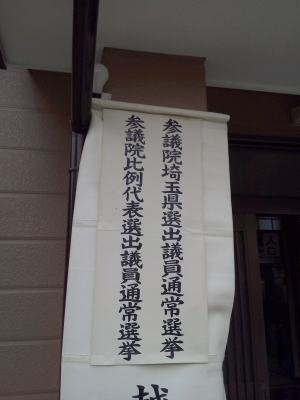 参議院埼玉県選出議員通常選挙
参議院比例代表選出議員通常選挙
入口